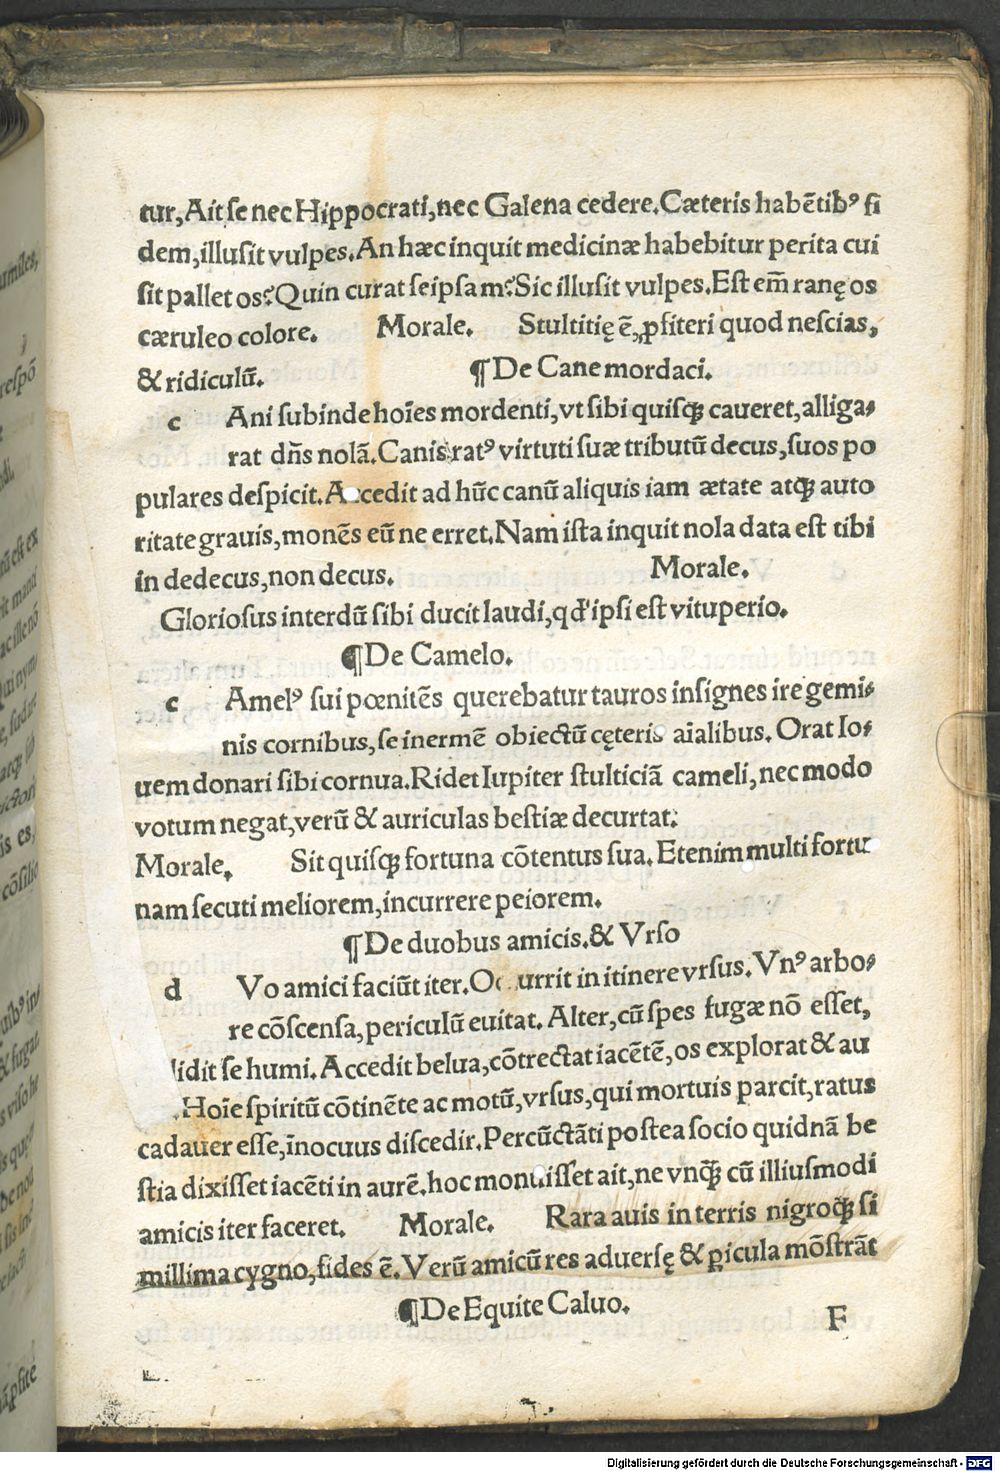 tur,Ait se nec Hippocrati,nec Galena cedere.Cæteris habētibꝰ fi
dem,illusit vulpes.An hæc inquit medicinæ habebitur perita cui
sit pallet os?Quin curat seipsam?Sic illusit vulpes.Est em̄ ranę os
cæruleo colore. Morale. Stultitię ē,ꝓfiteri quod nescias,
& ridiculū.
¶De Cane mordaci.
c Ani subinde hoīes mordenti,vt sibi quisqꝫ caueret,alliga⸗
rat dn̄s nolā.Canis ratꝰ virtuti suæ tributū decus,suos po
pulares despicit.A cedit ad hūc canū aliquis iam ætate atqꝫ auto
ritate grauis,monēs eū ne erret.Nam ista inquit nola data est tibi
in dedecus,non decus. Morale.
Gloriosus interdū sibi ducit laudi,qd' ipsi est vituperio.
¶De Camelo.
c Amelꝰ sui pœnitēs querebatur tauros insignes ire gemi⸗
nis cornibus,se inermē obiectū cęteris aīalibus. Orat Io⸗
uem donari sibi cornua.Ridet Iupiter stulticiā cameli,nec modo
votum negat,verū & auriculas bestiæ decurtat.
Morale. Sit quisqꝫ fortuna cōtentus sua.Etenim multi fortu
nam secuti meliorem,incurrere peiorem.
¶De duobus amicis.& Vrso
d Vo amici faciūt iter.Oc urrit in itinere vrsus.Vnꝰ arbo⸗
re cōscensa,periculū euitat.Alter,cū spes fugæ nō esset,
lidit se humi.Accedit belua,cōtrectat iacētē,os explorat & au
.Hoīe spiritū cōtinēte ac motū,vrsus,qui mortuis parcit,ratus
cadauer esse,īnocuus discedit.Percūctāti postea socio quidnā be
stia dixisset iacēti in aurē.hoc monuisset ait,ne vnqꝫ cū illiusmodi
amicis iter faceret. Morale. Rara auis in terris nigroqꝫ si
millima cygno,fides ē.Verū amicū res aduersę & ꝑicula mōstrāt
¶De Equite Caluo.
F
Digitalisierung gefördert durch die Deutsche Forschungsgemeinschaft - DFG